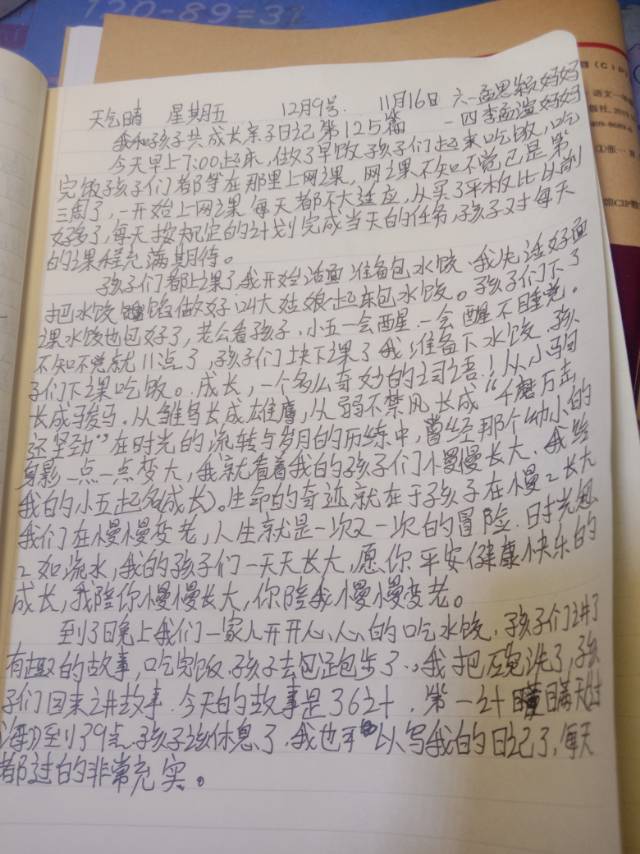 120-89=31
天气晴 星期五 12月9号 11月16日 六一孟思颖妈妈
我和孩子共成长亲子日记第125篇 一四李孟滢妈妈
今天早上7:00起床,做了早饭孩子们起来吃饭,吃
完饭孩子们都等在那里上网课,网课不知不觉已是第
三周了,一开始上网课每天都不大适应,从买了平板比以前
好多了,每天按规定的计划完成当天的任务,孩子对每天
的课程充满期待。
孩子们都上课了我开始活面准备包水饺.我先活好面
把水饺馅做好.叫大姑娘起床包水饺。孩子们下了
课水饺也包好了,老公看孩子.小五一会醒一会醒不睡觉。
不知不觉就11点了,孩子们一块下课了我准备下水饺.孩
子们下课吃饭。成长,一个多么奇妙的词语!从小马驹
长成骏马.从雏鸟长成雄鹰,从弱不禁风长成“千磨万击
还坚劲”在时光的流转与岁月的历练中,曾经那个幼小的
身影一点一点变大,我就看着我的孩子们慢慢长大.我给
我的小五起名(成长)。生命的奇迹就在于孩子在慢2长大
我们在慢慢变老,人生就是一次又一次的冒险.时光匆
2如流水,我的孩子们一天天长大,愿你平安健康快乐的
成长,我陪你慢慢长大,你陪我慢慢变老。
到了晚上我们一家人开开心心的吃水饺.孩子们讲了
有趣的故事,吃完饭孩子去跑步了.我把碗洗了,孩
子们回来讲故事.今天的故事是36计.第一计瞒天过
海到了9点孩子该休息了.我也可以写我的日记了,每天
都过的非常充实。